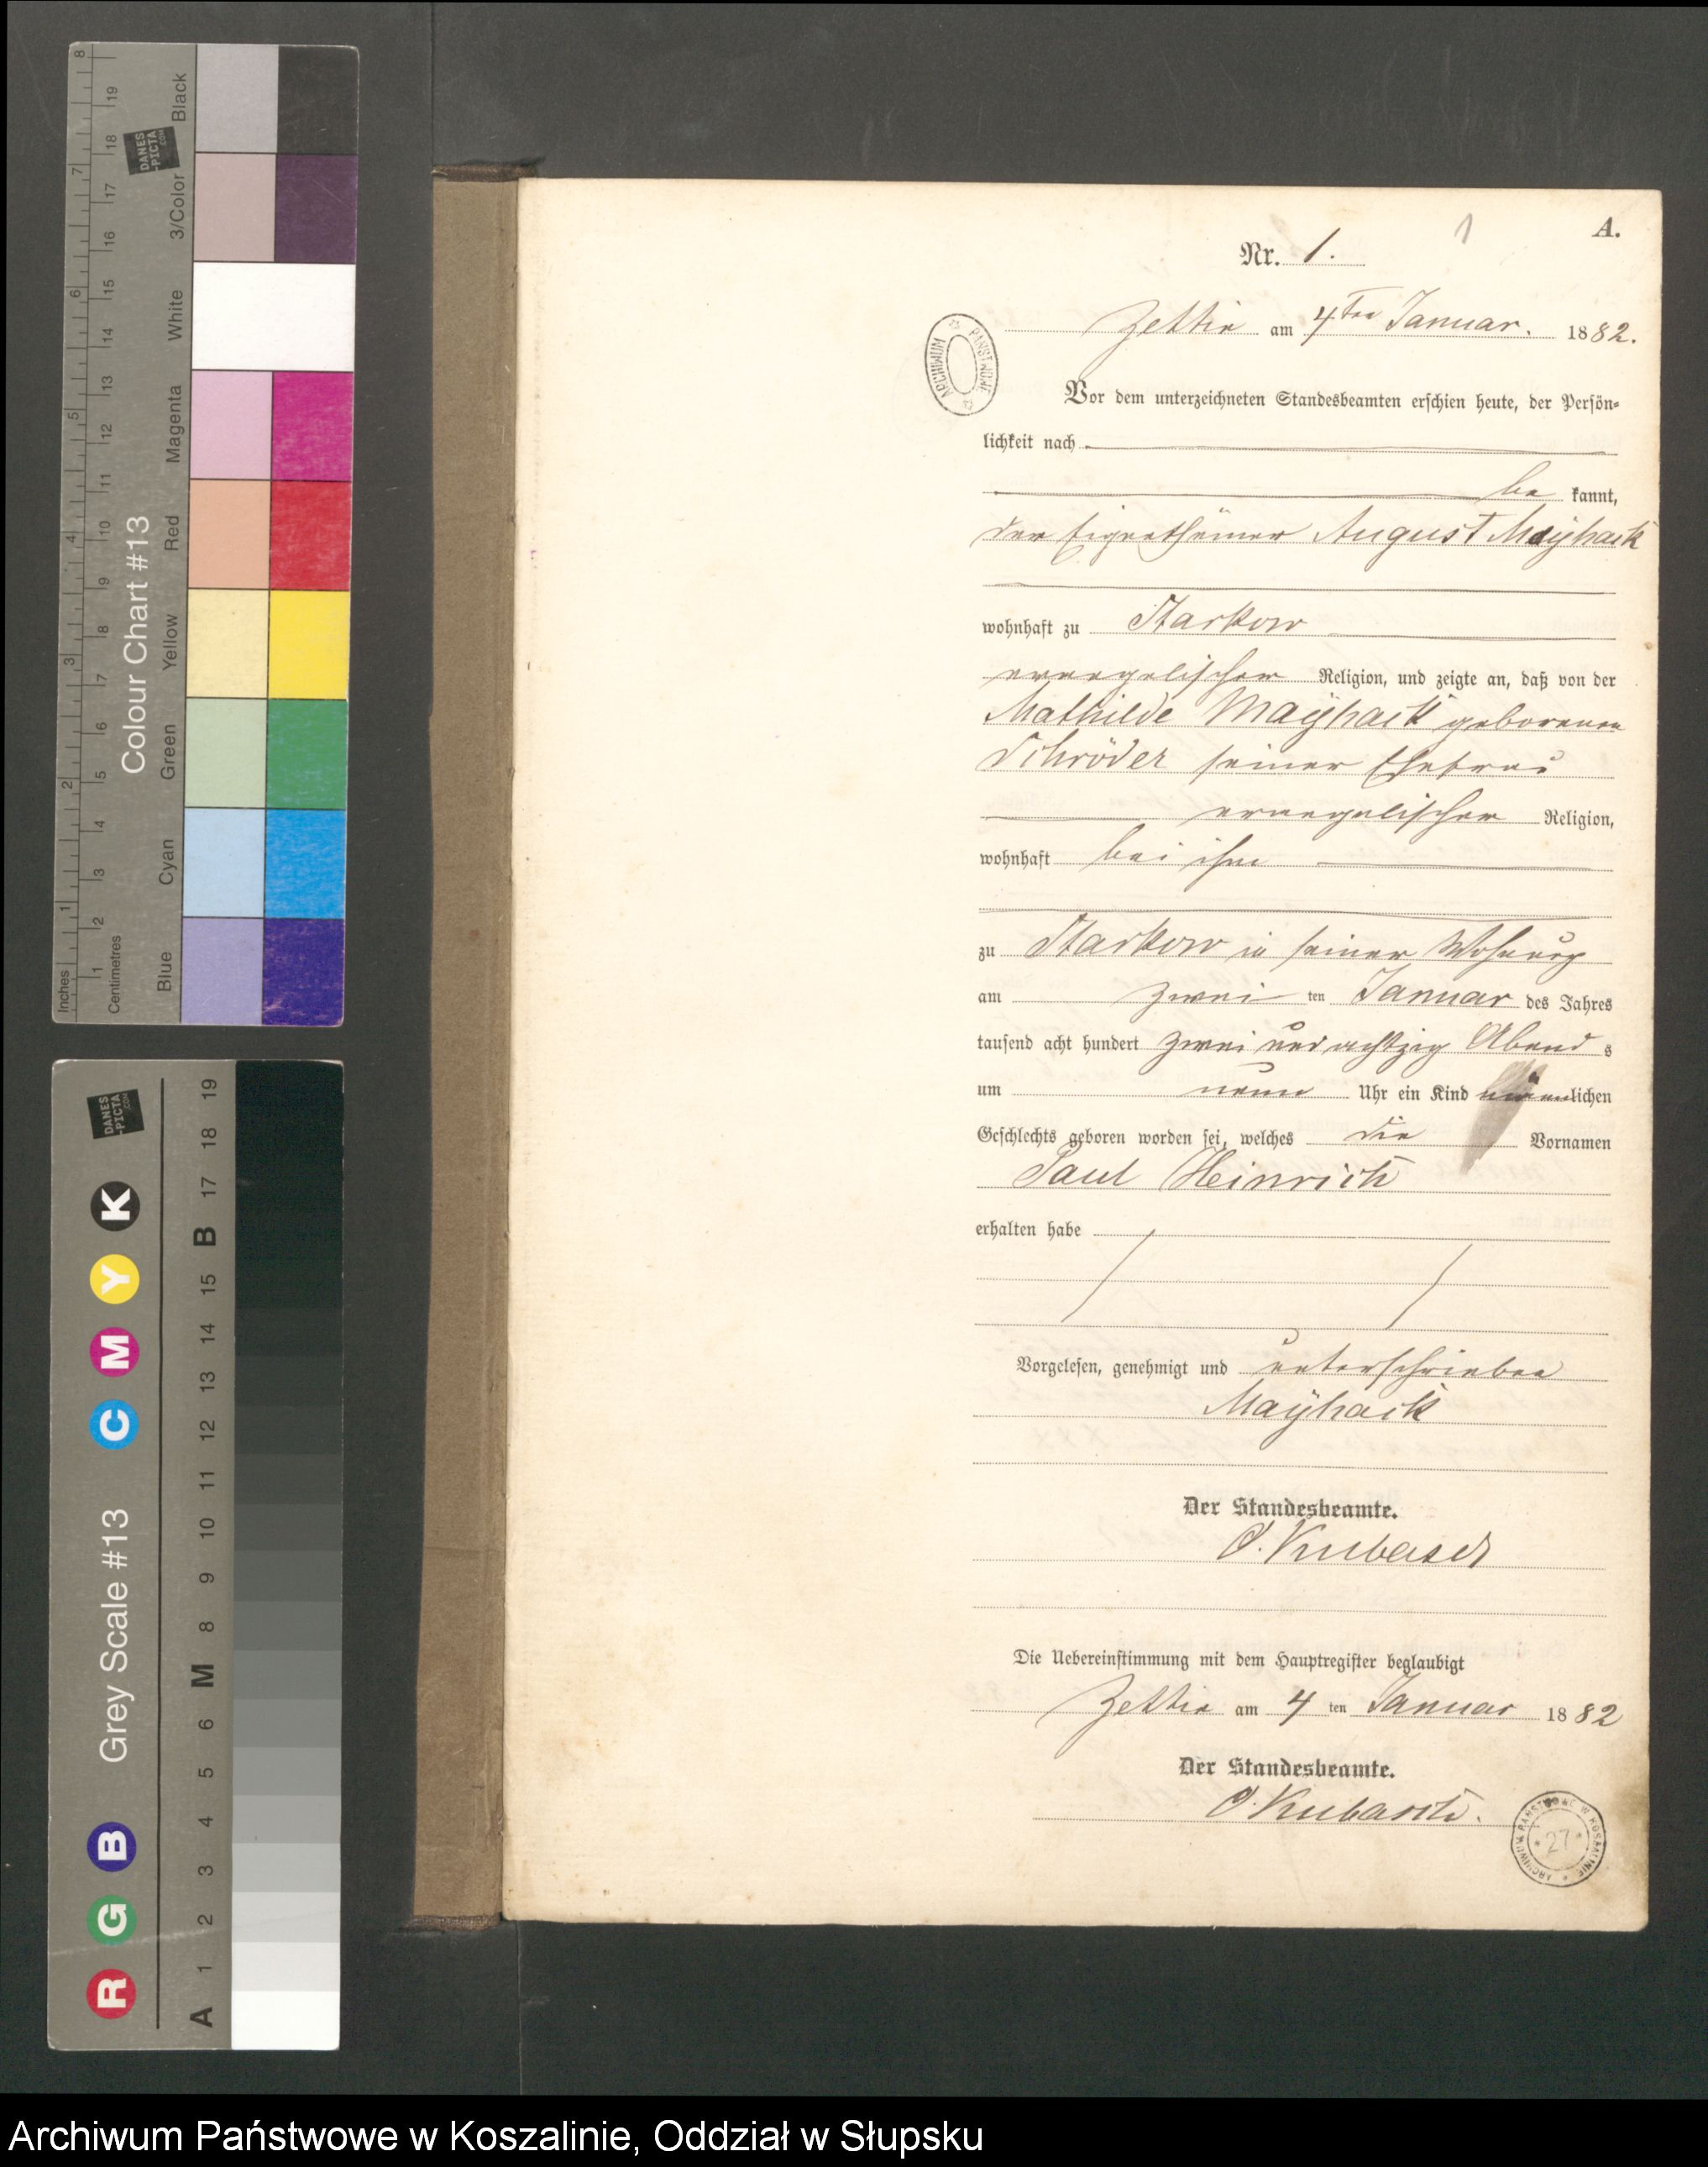 A.
1
Nr. 1.
Zettin am 4ten Januar. 1882.
ARCHIWUM PAŃSTWOWE
Vor dem unterzeichneten Standesbeamten erschien heute, der Persön-
lichkeit nach
be kannt,
der Eigenthümer August Mayhack
wohnhaft zu Starkow
evangelischer Religion, und zeigte an, daß von der
Mathilde Mayhack geborenen
Schröder seiner Ehefrau
evangelischer Religion,
wohnhaft bei ihm
zu Starkow in seiner Wohnung
am zwei ten Januar des Jahres
tausend acht hundert zwei und achtzig Abend s
um neun Uhr ein Kind männlichen
Geschlechts geboren worden sei, welches die Vornamen
Paul Heinrich
erhalten habe
Vorgelesen, genehmigt und unterschrieben
Mayhack
Der Standesbeamte.
Kubasch
Die Uebereinstimmung mit dem Hauptregister beglaubigt
Zettin am 4 ten Januar 1882
Der Standesbeamte.
Kubasch.
ARCHIWUM PAŃSTWOWE W KOSZALINIE
27
8 7 6 5 4 3 2 1
Inches
19 18 17 16 15 14 13 12 11 10 9 8 7 6 5 4 3 2 1
Centimetres
DANES
-PICTA
.COM
Colour Chart #13
Blue Cyan Green Yellow Red Magenta White 3/Color Black
DANES
-PICTA
.COM
R G B Grey Scale #13 C M Y K
A 1 2 3 4 5 6 M 8 9 10 11 12 13 14 15 B 17 18 19
Archiwum Państwowe w Koszalinie, Oddział w Słupsku